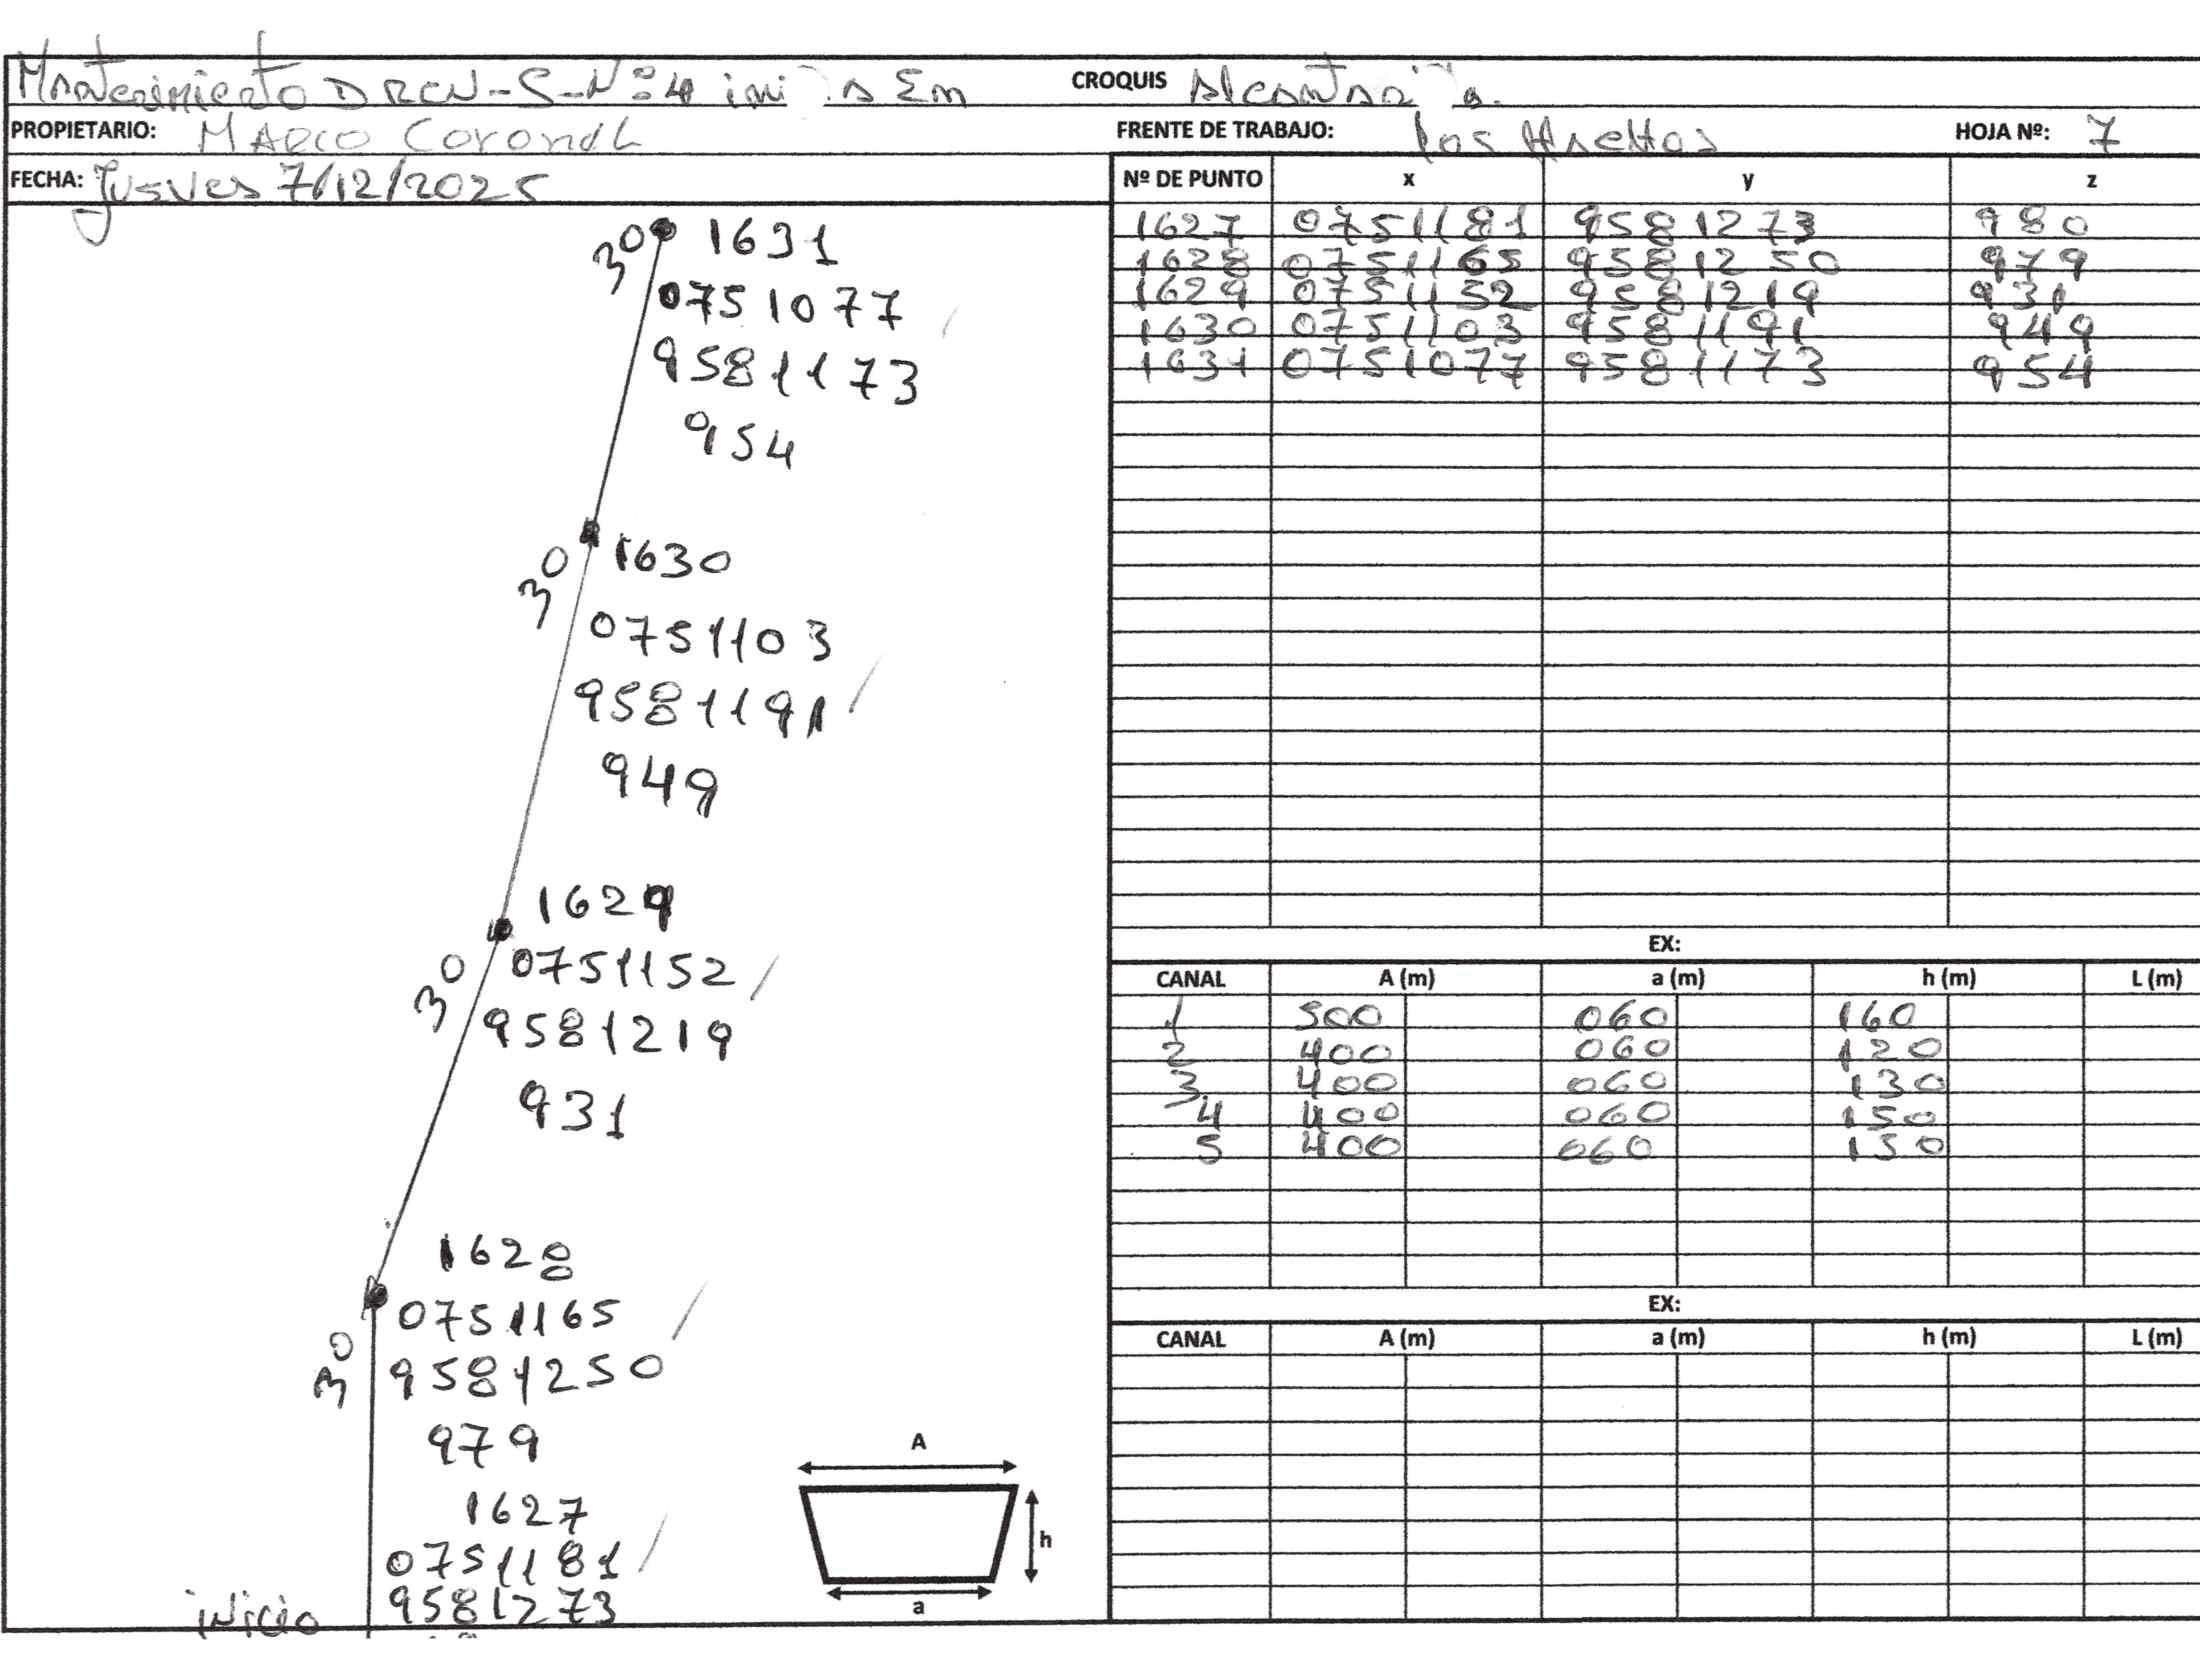 Mantenimiento DREN-S-Nº4 ini s Em CROQUIS
PROPIETARIO: MARCO CORONEL FRENTE DE TRABAJO: los HOJA Nº: 7
FECHA: Jueves 7/12/2025
Nº DE PUNTO x y z
1627 0751181 9581273 980
1628 0751165 9581250 979
1629 0751152 9581219 931
1630 0751103 9581191 949
1631 0751077 9581173 954
30 1631
0751077
9581173
954
30 1630
0751103
9581191
949
1629
30 0751152
9581219
931
1628
0751165
30 9581250
979
1627
0751181
inicio 9581273
A
h
a
EX:
CANAL A (m) a (m) h (m) L (m)
1 500 060 160
2 400 060 120
3 400 060 130
4 400 060 150
5 400 060 130
EX:
CANAL A (m) a (m) h (m) L (m)